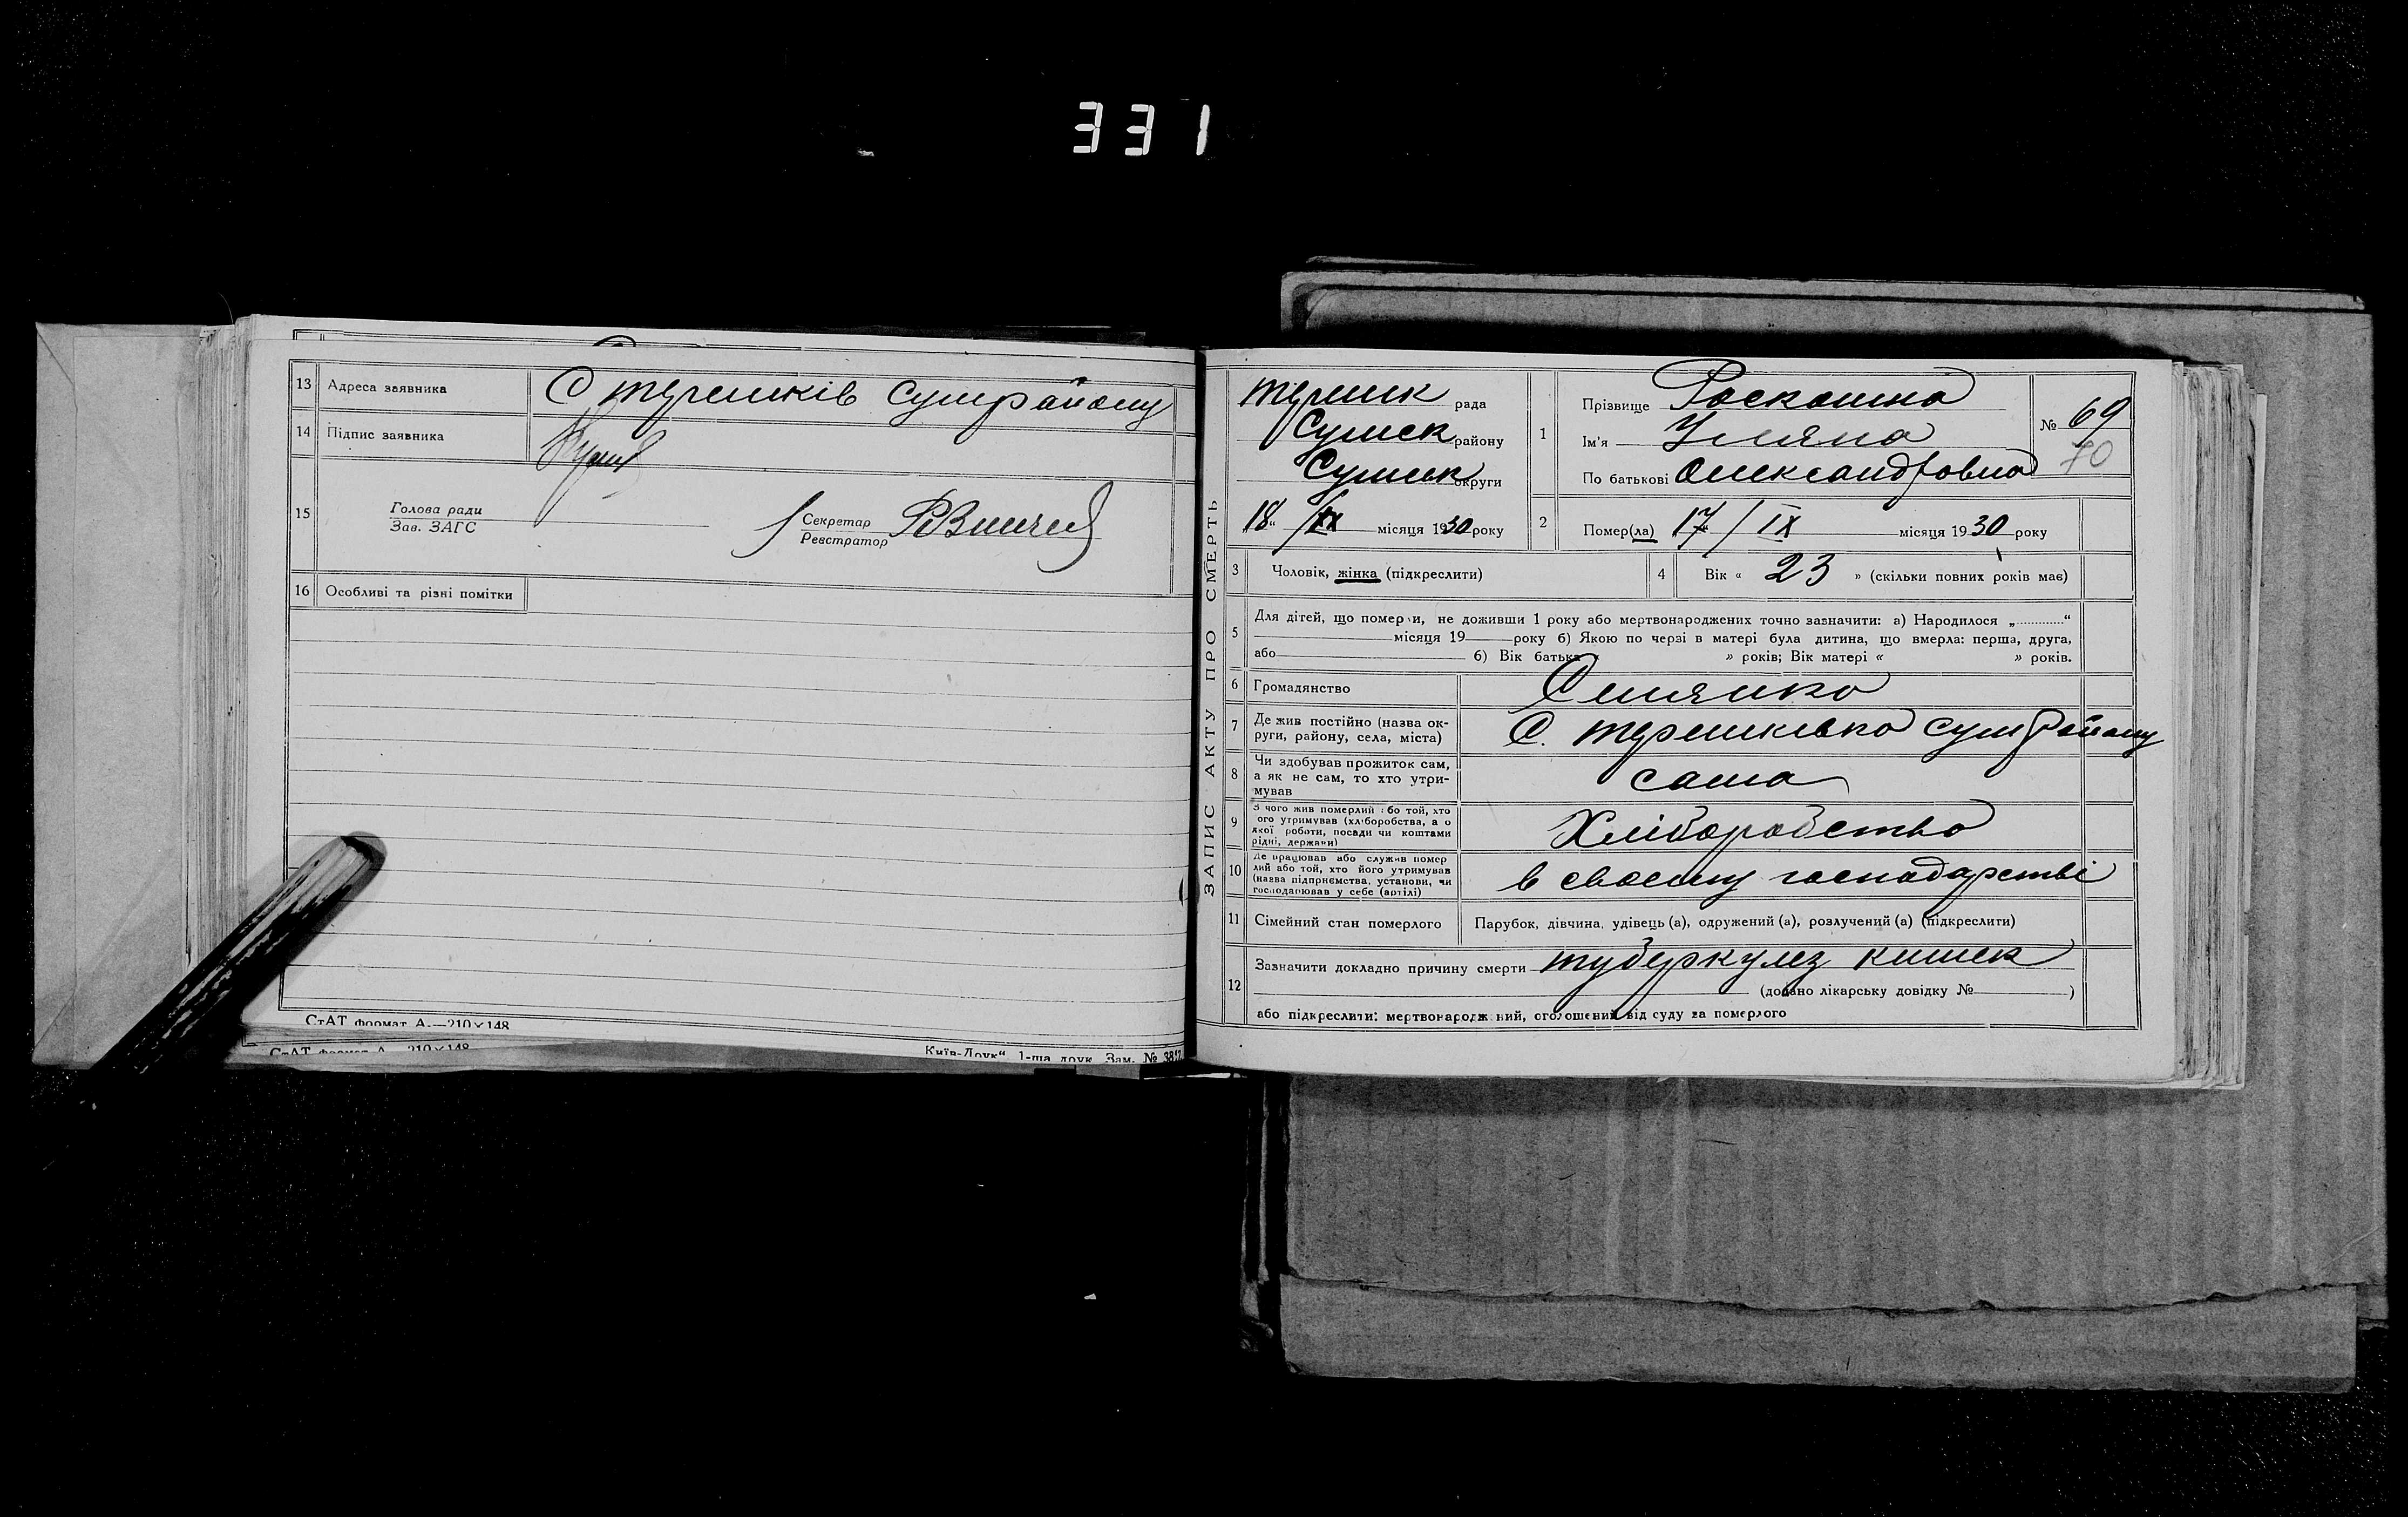 331
13 Адреса заявника С терешків Сумрайону
14 Підпис заявника
15 Голова ради
Зав. ЗАГС
Секретар
Реєстратор
16 Особливі та різні помітки
СтАТ формат А.—210×148
СтАТ формат А.—210×148
Київ-Друк" 1-ша друк. Зам. №
ЗАПИС АКТУ ПРО СМЕРТЬ
Терешк рада
Сумск району
Сумськ округи
18 " / IX місяця 1930 року
1 Прізвище Роскошна
Ім'я Уляна
По батькові Олександровна
№ 69
70
2 Помер(ла) 17 / IX місяця 1930 року
3 Чоловік, жінка (підкреслити)
4 Вік « 23 » (скільки повних років має)
5 Для дітей, що померли, не доживши 1 року або мертвонароджених точно зазначити: а) Народилося „............“
місяця 19 року б) Якою по черзі в матері була дитина, що вмерла: перша, друга,
або б) Вік батька « » років; Вік матері « » років.
6 Громадянство Селянка
7 Де жив постійно (назва ок-
руги, району, села, міста) С. терешківка СумРайону
8 Чи здобував прожиток сам,
а як не сам, то хто утри-
мував сама
9 З чого жив померлий або той, хто
його утримував (хліборобства, а о
якої роботи, посади чи коштами
рідні, держави) Хліборобство
10 Де працював або служив помер
лий або той, хто його утримував
(назва підприємства, установи, чи
господарював у себе (артілі) в своєму господарстві
11 Сімейний стан померлого Парубок, дівчина, удівець (а), одружений (а), розлучений (а) (підкреслити)
12 Зазначити докладно причину смерти туберкулез кишек
(додано лікарську довідку № )
або підкреслити: мертвонароджений, оголошений від суду за померлого